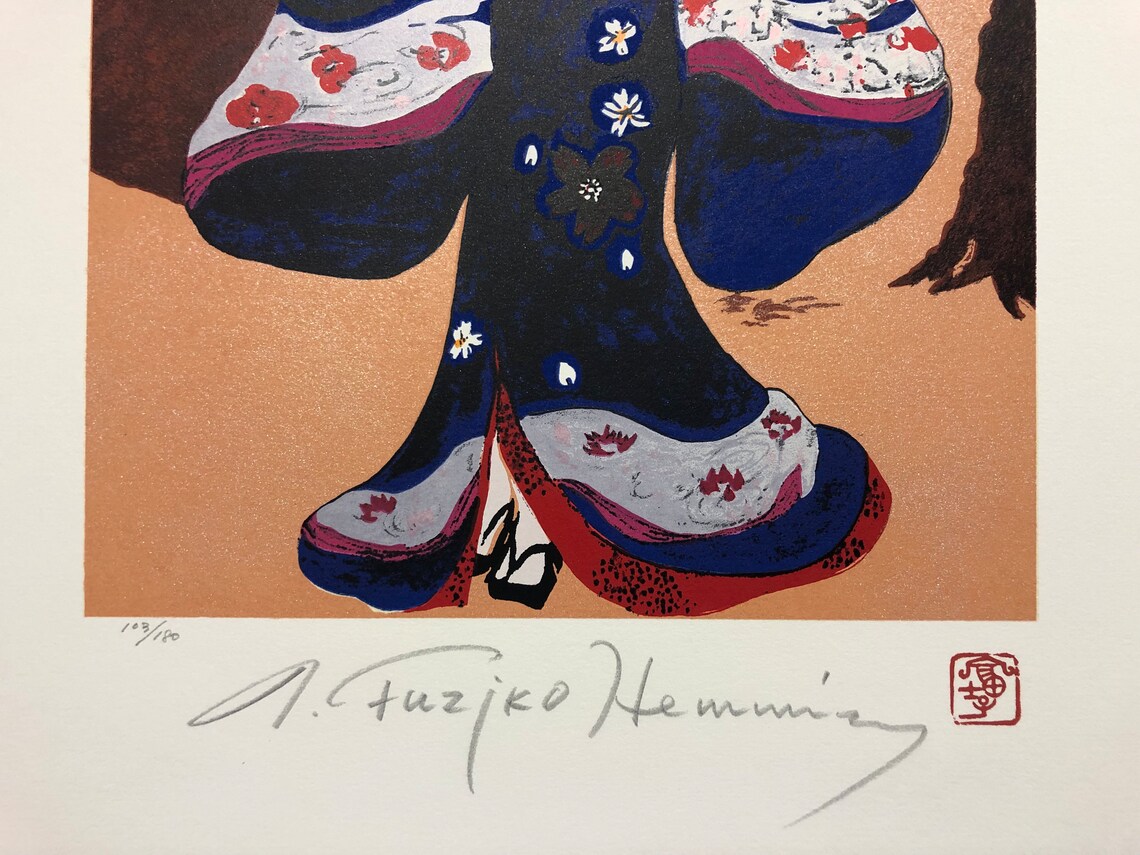 103/180
A. Fuzjko Hemming
富士子